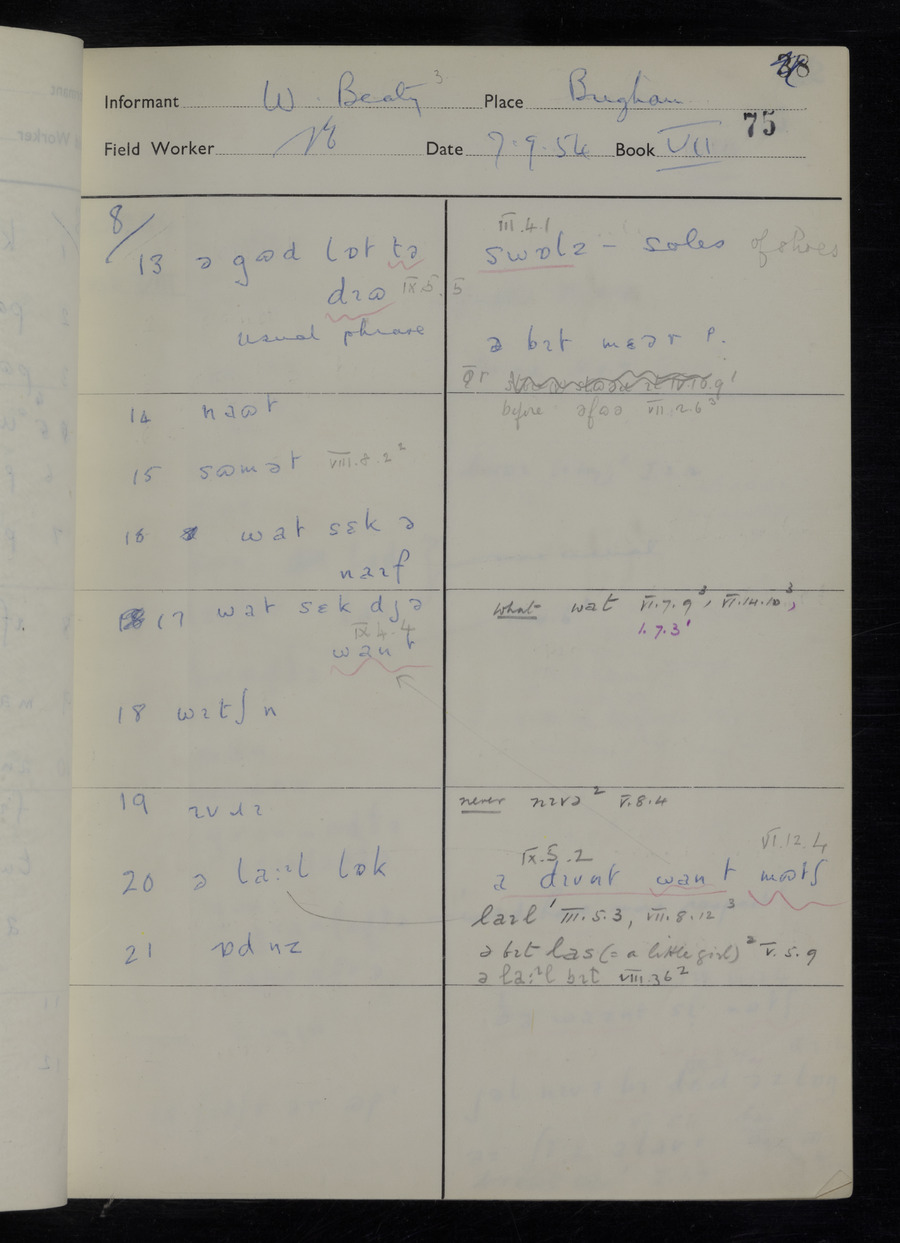 38
Informant W. Beaty 3 Place Brigham
75
Field Worker Date 7.9.54 Book VII
8/
13 ə gʊd lɒt tə
dɪʊ IX.5.5
usual phrase
III.4.1
swɒlz – soles of shoes
ə bɪt mɛər P.
before əfʊə VII.2.6³
14 naʊt
15 sʊmət VIII.8.2²
16 wat sɛk ə
naɪf
17 wat sɛk djə
IX.4.4
want
what wat VI.7.9³, VI.14.10³,
1.7.3'
18 wɪtʃ n
19 ɪvɹɪ
never nɪvə² V.8.4
20 ə la:ɪl lɒk
VI.12.4
IX.5.2
a dɪvnt want mʊtʃ
laɪl' III.5.3, VII.8.12³
21 ɒd nz
ə bɪt las (= a little girl)² V.5.9
ə la:ɪl bɪt VIII.36²